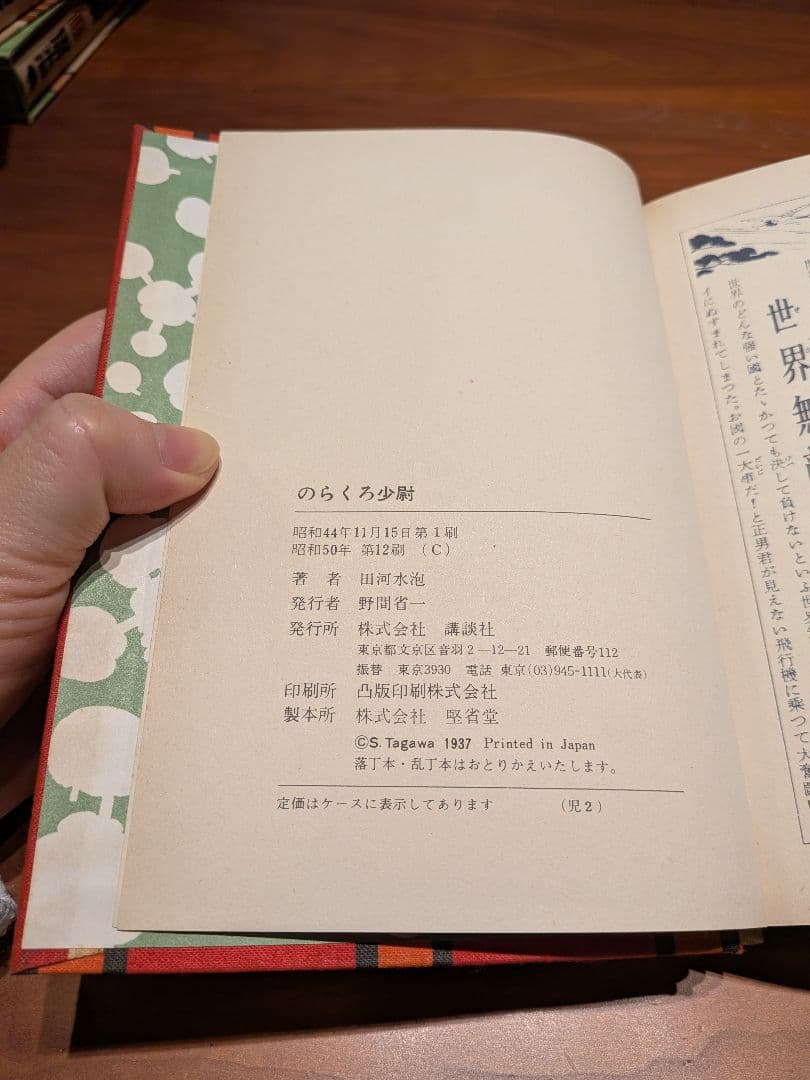 のらくろ少尉
昭和44年11月15日第1刷
昭和50年 第12刷 (C)
著 者 田河水泡
発行者 野間省一
発行所 株式会社 講談社
東京都文京区音羽2―12―21 郵便番号112
振替 東京3930 電話 東京(03)945-1111(大代表)
印刷所 凸版印刷株式会社
製本所 株式会社 堅省堂
©S. Tagawa 1937 Printed in Japan
落丁本・乱丁本はおとりかえいたします。
定価はケースに表示してあります (児2)
世界無
世界のどんな強い國とたゝかつても決して負けないといふ世界
イにぬすまれてしまつた。お國の一大事だ!と正男君が見えない飛行機に乗つて大奮闘